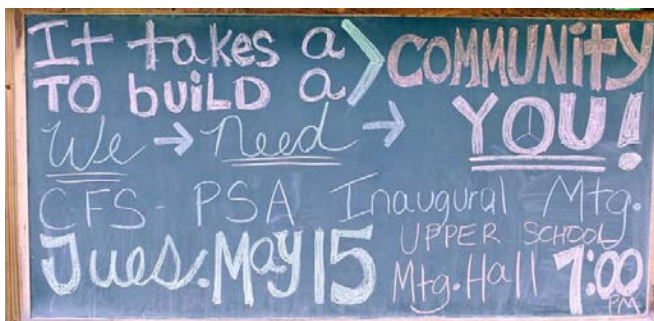 It takes a > COMMUNITY
TO bUiLD a
We → Need → YOU!
CFS - PSA Inaugural Mtg.
Tues. May 15 UPPER SCHOOL
Mtg. Hall 7:00 PM